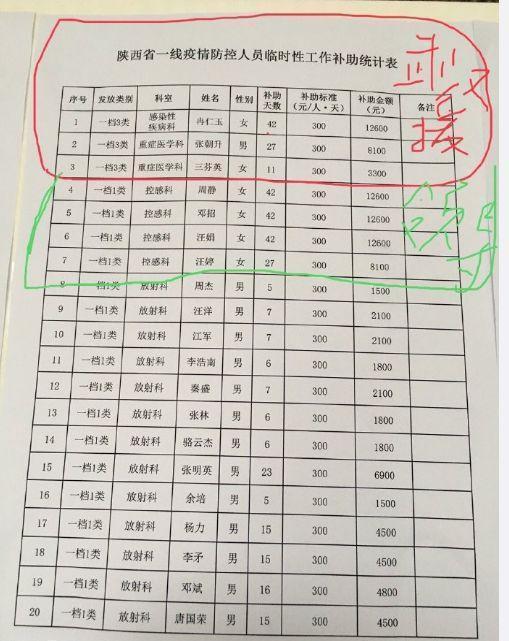 陕西省一线疫情防控人员临时性工作补助统计表
序号 发放类别 科室 姓名 性别 补助天数 补助标准（元/人·天） 补助金额（元） 备注
1 一档3类 感染性疾病科 冉仁玉 女 42 300 12600
2 一档3类 重症医学科 张朝升 男 27 300 8100
3 一档3类 重症医学科 三芬英 女 11 300 3300
4 一档1类 控感科 周静 女 42 300 12600
5 一档1类 控感科 邓招 女 42 300 12600
6 一档1类 控感科 汪娟 女 42 300 12600
7 一档1类 控感科 汪婷 女 27 300 8100
8 一档1类 放射科 周杰 男 5 300 1500
9 一档1类 放射科 汪洋 男 7 300 2100
10 一档1类 放射科 江军 男 7 300 2100
11 一档1类 放射科 李浩南 男 6 300 1800
12 一档1类 放射科 秦盛 男 7 300 2100
13 一档1类 放射科 张林 男 6 300 1800
14 一档1类 放射科 骆云杰 男 6 300 1800
15 一档1类 放射科 张明英 男 23 300 6900
16 一档1类 放射科 余培 男 5 300 1500
17 一档1类 放射科 杨力 男 15 300 4500
18 一档1类 放射科 李矛 男 15 300 4500
19 一档1类 放射科 邓斌 男 16 300 4800
20 一档1类 放射科 唐国荣 男 15 300 4500